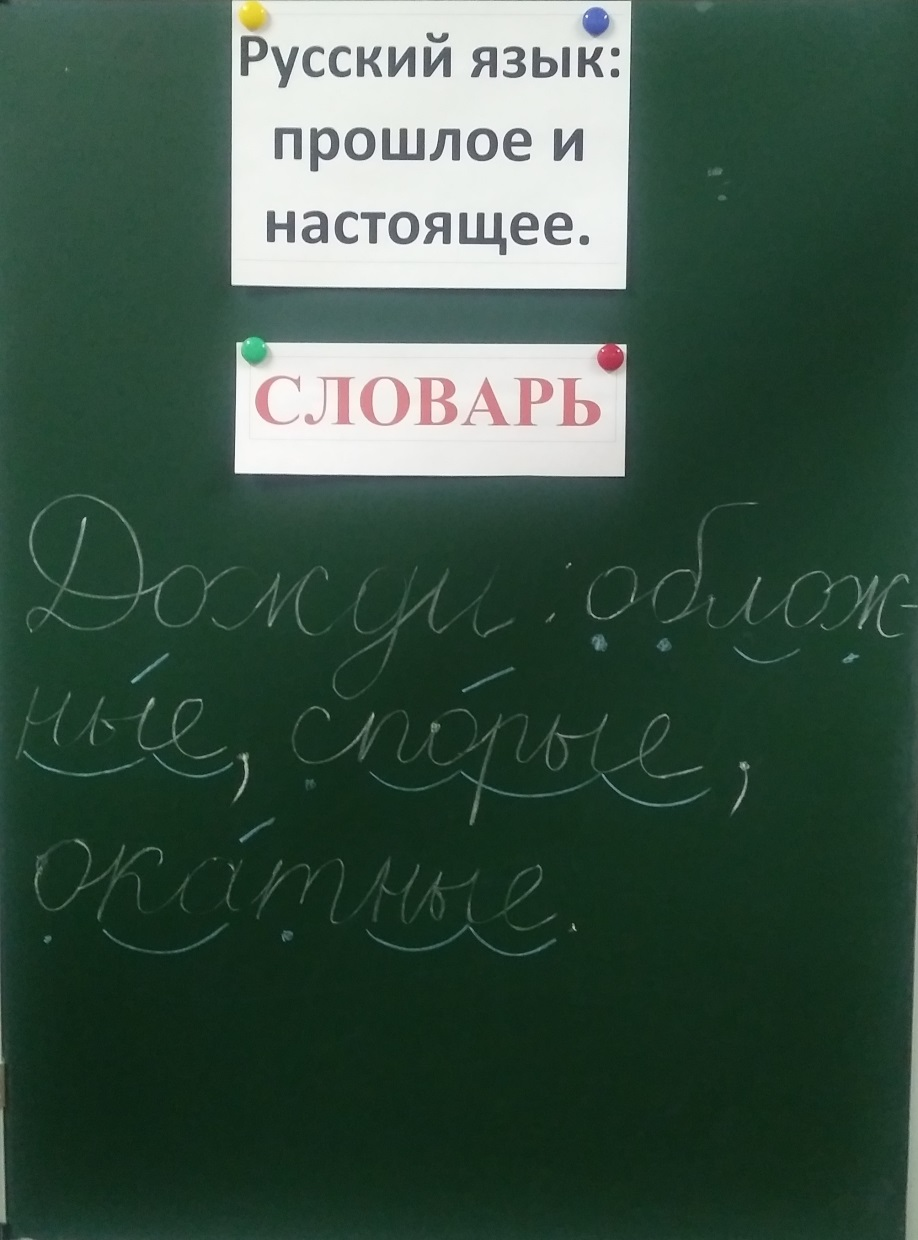 Русский язык:
прошлое и
настоящее.
СЛОВАРЬ
Дожди: облож-
ны́е, спо́рые,
ока́тные.